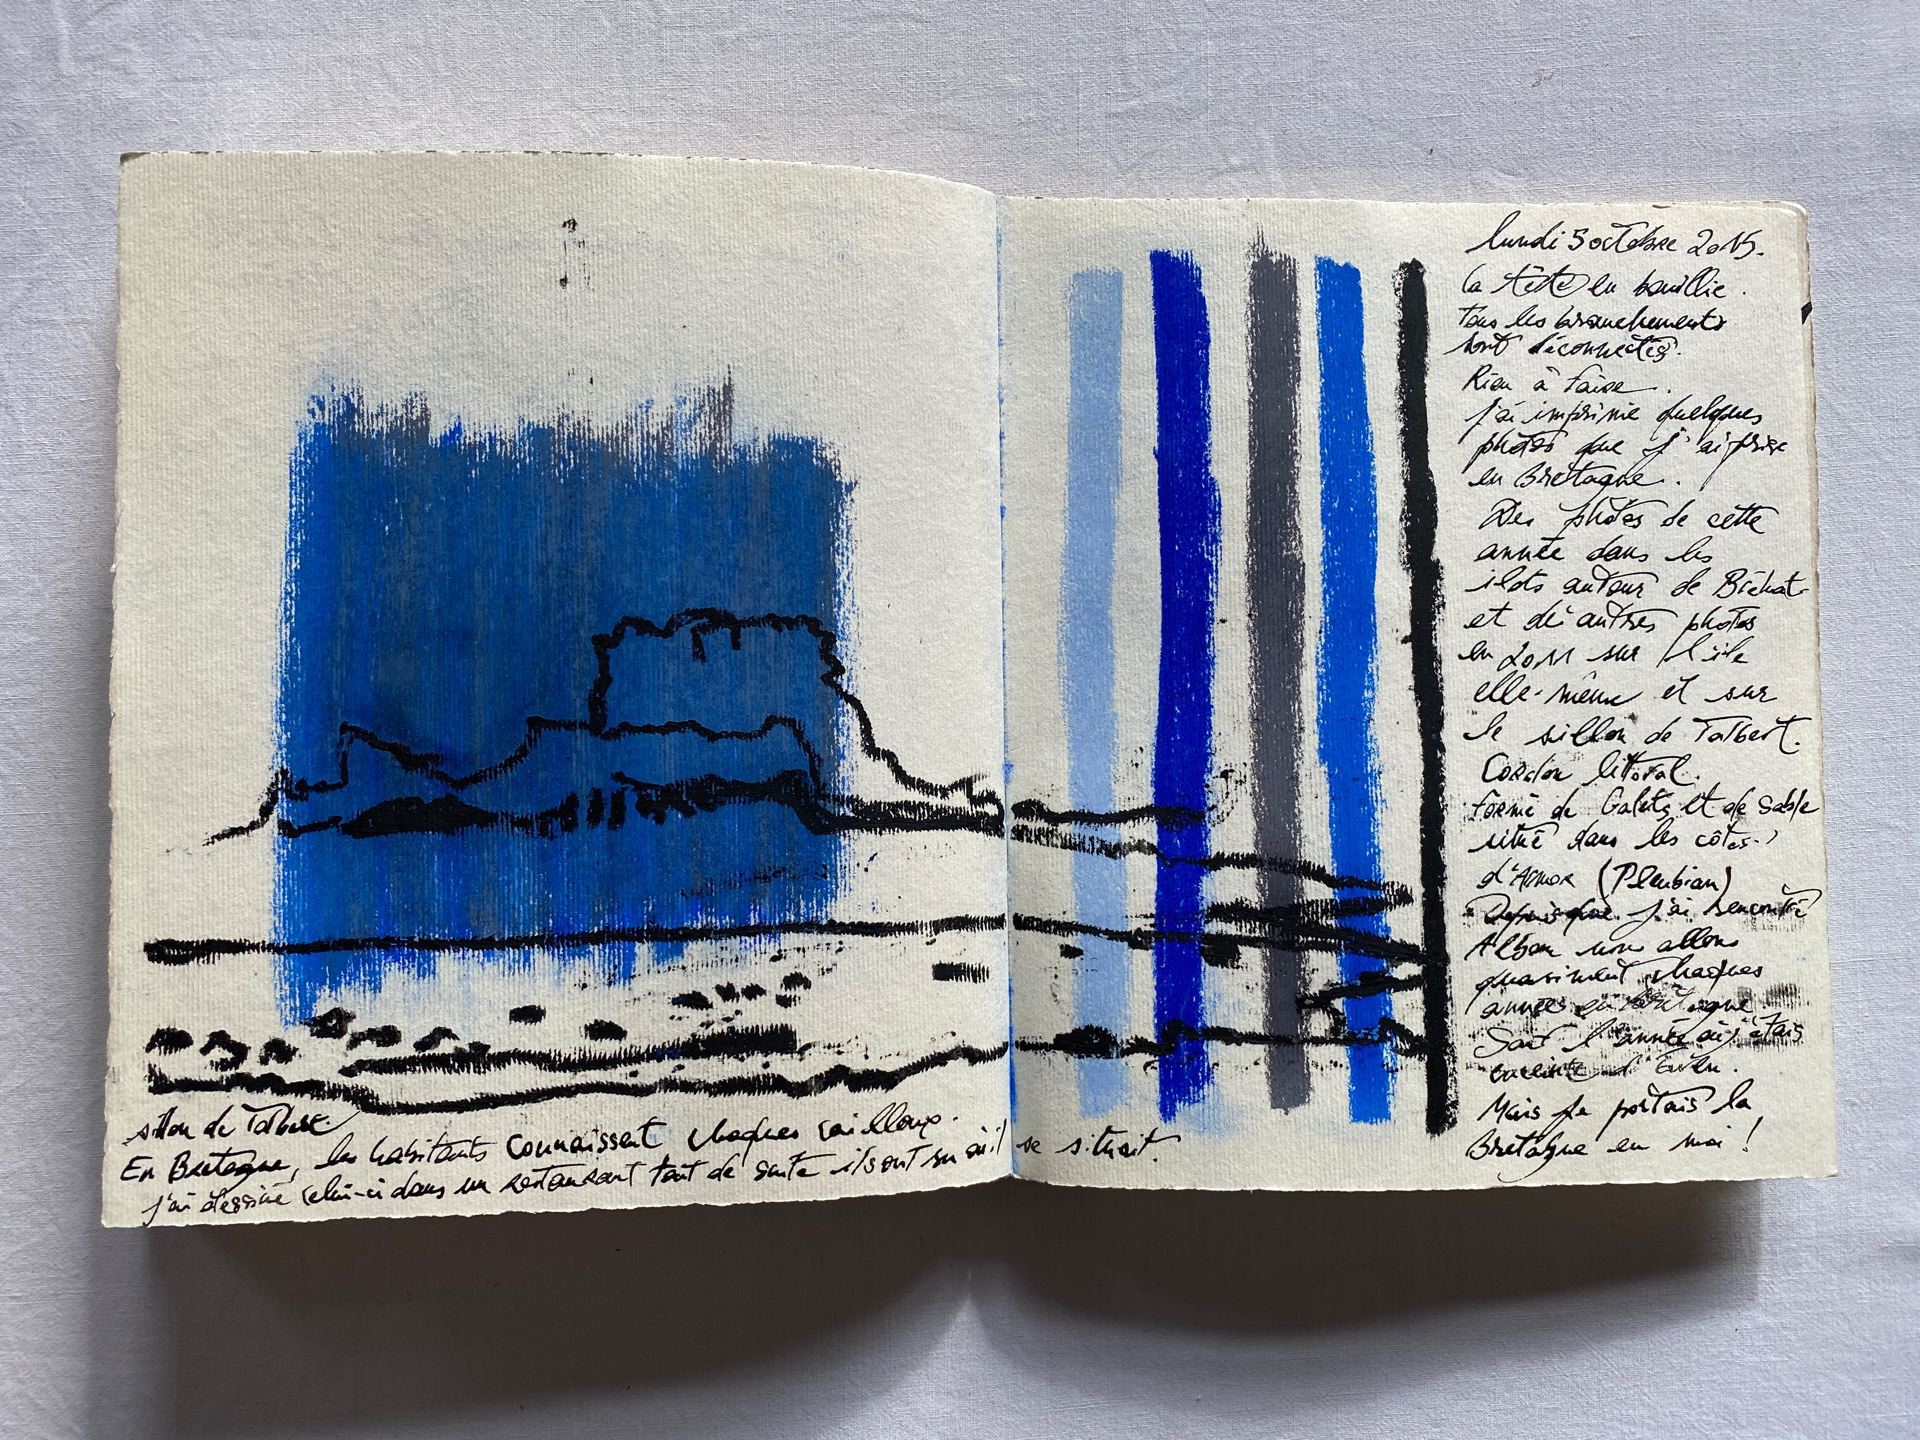 sillon de Talbert.
En Bretagne, les habitants connaissent chaques cailloux.
j'ai dessiné celui-ci dans un restaurant tout de suite ils ont su où il se situait.
lundi 5 octobre 2015.
la tête en bouillie.
tous les branchements
sont déconnectés.
Rien à faire.
J'ai imprimé quelques
photos que j'ai prise
en Bretagne.
Des photos de cette
année dans les
ilots autour de Bréhat
et d'autres photos
en 2011 sur l'île
elle-même et sur
le sillon de Talbert.
Cordon littoral.
formé de Galets et de Sable
situé dans les côtes
d'Armor (Pleubian)
Depuis que j'ai rencontré
Alban nous allons
quasiment chaques
années en Bretagne
Sauf l'année où j'étais
enceinte d'Ewen.
Mais je portais la
Bretagne en moi !